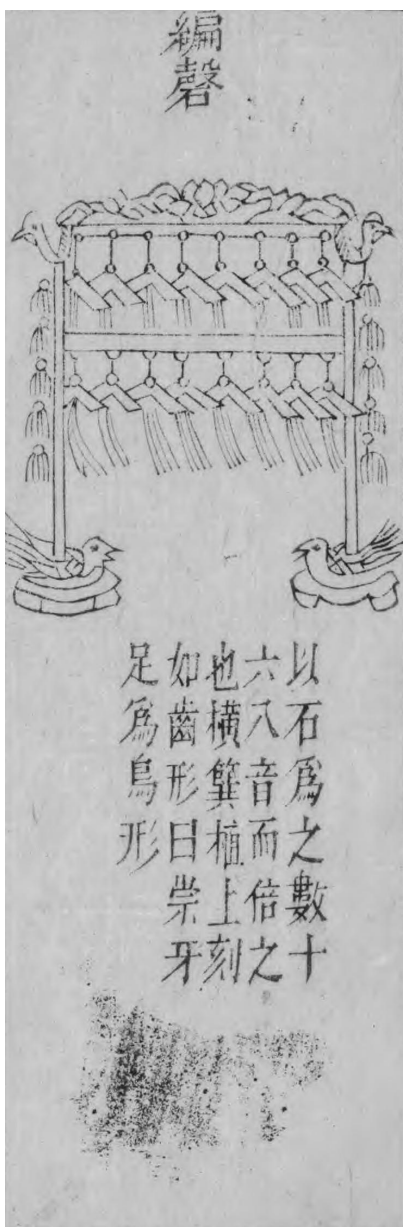 編磬
以石爲之數十
六八音而倍之
也橫簨植上刻
如齒形曰崇牙
足爲鳥形